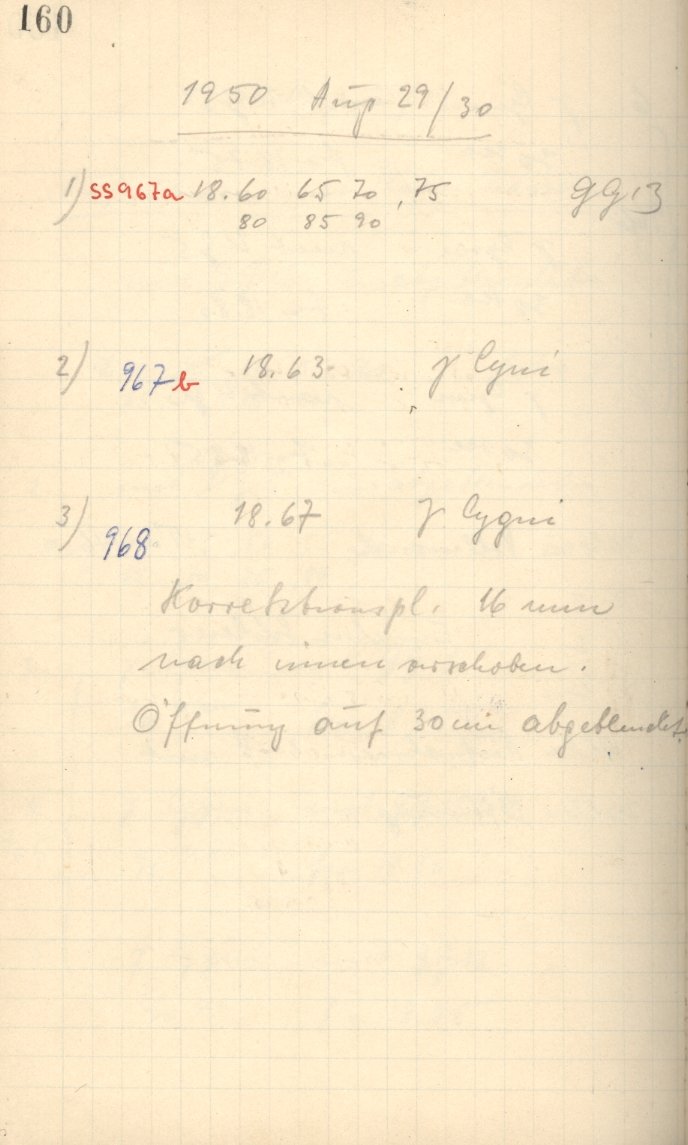 160
1950 Aug 29/30
1) SS967a 18.60 65 70, 75 GG 13
80 85 90
2) 967b 18.63 γ Cyni
3) 968 18.67 γ Cygni
Korrektionspl. 16 mm
nach innen verschoben.
Öffnung auf 30 cm abgeblendet